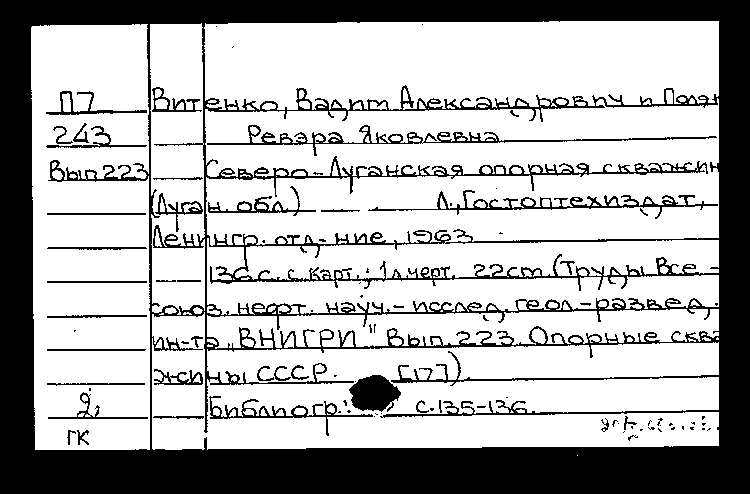 П7 Витенко, Вадим Александрович и Поляк
243 Ревэра Яковлевна
Вып.223 Северо-Луганская опорная скважин
(Луган. обл.) Л., Гостоптехиздат,
Ленингр. отд-ние, 1963
136 с. с карт.; 1 л. черт. 22 cm. (Труды Все-
союз. нефт. науч.-исслед. геол.-развед.
ин-та "ВНИГРИ" Вып. 223. Опорные сква
жины СССР. [17])
2, Библиогр.: с. 135-136.
ГК